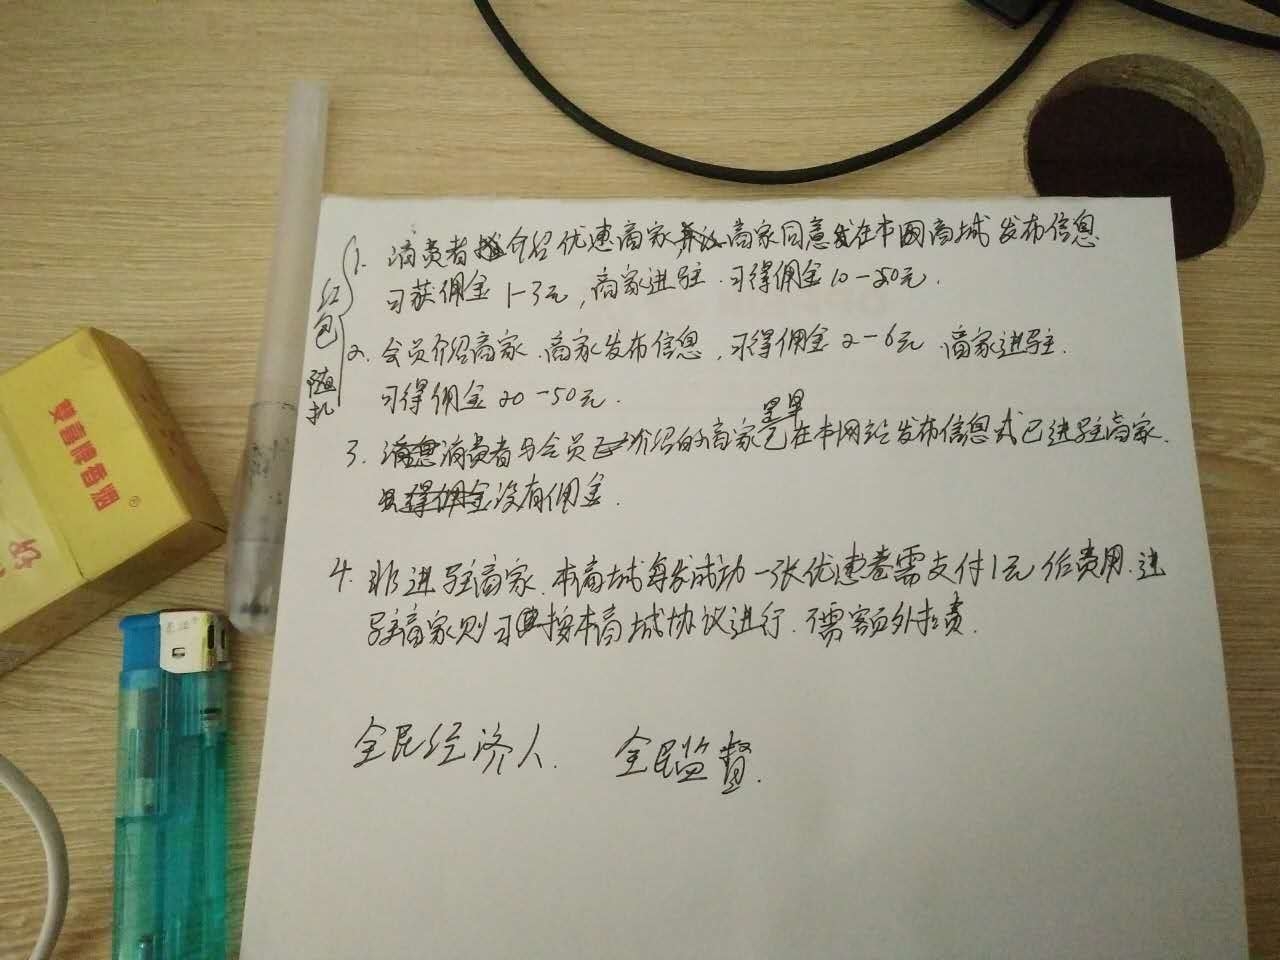 红包
随机
1. 消费者介绍优惠商家并让商家同意在本网商城发布信息
可获佣金1-3元,商家进驻.可得佣金10-20元.
2. 会员介绍商家.商家发布信息,可得佣金2-6元 商家进驻.
可得佣金20-50元.
3. 消费者与会员介绍的商家已在本网站发布信息或已进驻商家.
没有佣金.
4. 非进驻商家.本商城每发成功一张优惠卷需支付1元作费用.进
驻商家则可按本商城协议进行.不需额外扣费.
全民经济人. 全民监督.
雙喜牌香烟
®